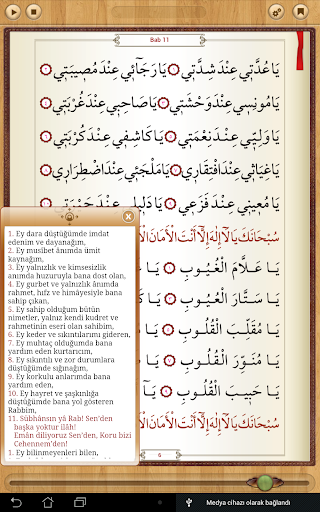 Bab 11
يَا عُدَّتِي عِنْدَ شِدَّتِي ۞ يَا رَجَائِي عِنْدَ مُصِيبَتِي ۞
يَا مُونِسِي عِنْدَ وَحْشَتِي ۞ يَا صَاحِبِي عِنْدَ غُرْبَتِي ۞
يَا وَلِيِّي عِنْدَ نِعْمَتِي ۞ يَا كَاشِفِي عِنْدَ كُرْبَتِي ۞
يَا غِيَاثِي عِنْدَ افْتِقَارِي ۞ يَا مَلْجَئِي عِنْدَ اضْطِرَارِي ۞
يَا مُعِينِي عِنْدَ فَزَعِي ۞ يَا دَلِيلِي عِنْدَ حَيْرَتِي ۞
سُبْحَانَكَ يَا لَا إِلٰهَ إِلَّا أَنْتَ الْأَمَانَ الْأَ
يَا عَلَّامَ الْغُيُوبِ ۞ يَا غَ
يَا سَتَّارَ الْعُيُوبِ ۞ يَا كَ
يَا مُقَلِّبَ الْقُلُوبِ ۞ يَا مُ
يَا مُنَوِّرَ الْقُلُوبِ ۞ يَا طَ
يَا حَبِيبَ الْقُلُوبِ ۞ يَا أَ
سُبْحَانَكَ يَا لَا إِلٰهَ إِلَّا أَنْتَ الْأَمَانَ الْأَ
1. Ey dara düştüğümde imdat
edenim ve dayanağım,
2. Ey musibet ânımda ümit
kaynağım,
3. Ey yalnızlık ve kimsesizlik
anımda huzuruyla bana dost olan,
4. Ey gurbet ve yalnızlık ânımda
rahmet, hıfz ve himâyesiyle bana
sahip çıkan,
5. Ey sahip olduğum bütün
nimetler, yalnız kendi kudret ve
rahmetinin eseri olan sahibim,
6. Ey keder ve sıkıntılarımı gideren,
7. Ey muhtaç olduğumda bana
yardım eden kurtarıcım,
8. Ey sıkıntılı ve zor durumlara
düştüğümde sığınağım,
9. Ey korkulu anlarımda bana
yardım eden,
10. Ey hayret ve şaşkınlığa
düştüğümde bana yol gösteren
Rabbim,
11. Sübhânsın yâ Rab! Sen'den
başka yoktur ilâh!
Emân diliyoruz Sen'den, Koru bizi
Cehennem'den!
1. Ey bilinmeyenleri bilen,
6
Medya cihazı olarak bağlandı